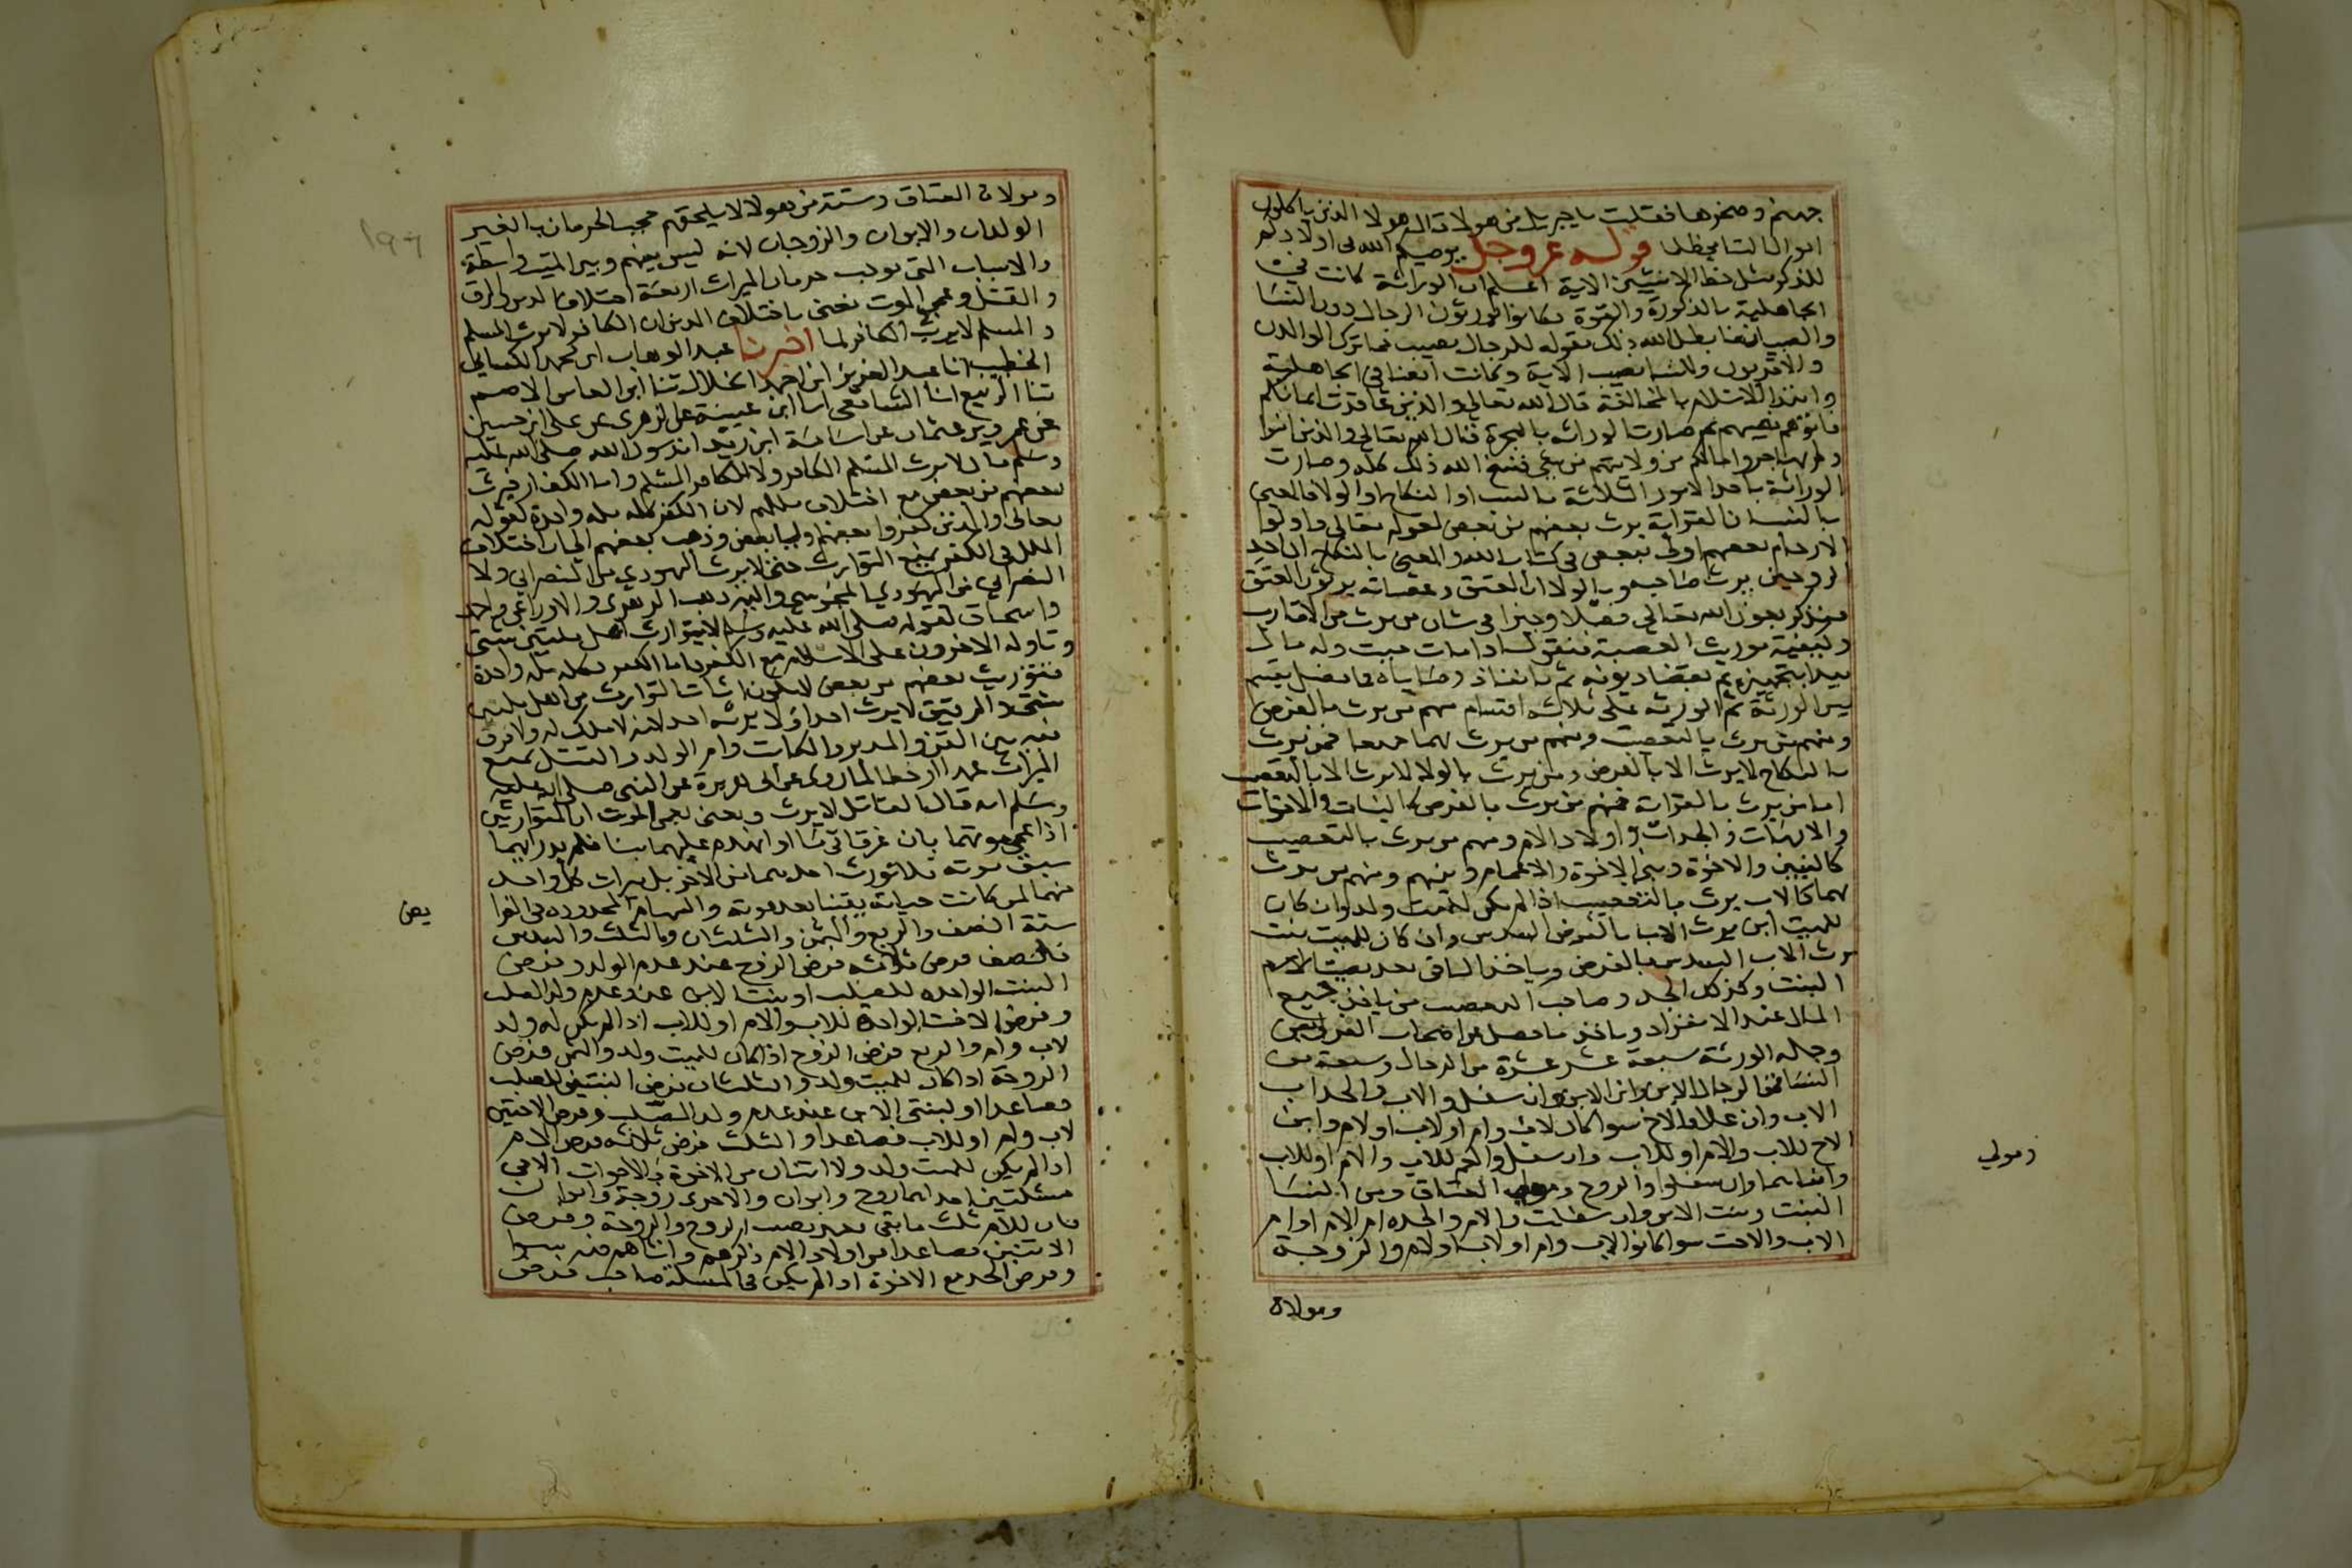 جهنم وصخرها فقلت يا جبريل من هولا قال هولا الذين ياكلون
اموال اليتامى ظلما قوله عز وجل يوصيكم الله في اولادكم
للذكر مثل حظ الانثيين الاية اعلم ان الوراثة كانت في
الجاهلية بالذكورة والقوة وكانوا يورثون الرجال دون النسا
والصبيان فابطل الله ذلك بقوله للرجال نصيب مما ترك الوالدان
والاقربون وللنسا نصيب الاية وكانت ايضا في الجاهلية
وابتدا الاسلام بالمحالفة قال الله تعالى والذين عاقدت ايمانكم
فاتوهم نصيبهم ثم صارت الوراثة بالهجرة قال الله تعالى والذين امنوا
ولم يهاجروا مالكم من ولايتهم من شي فنسخ الله ذلك كله وصارت
الوراثة باحد الامور الثلاثة بالنسب او النكاح او الولا فالمعنى
بالنسب ان القرابة يرث بعضهم من بعض لقوله تعالى واولوا
الارحام بعضهم اولى ببعض في كتاب الله والمعنى بالنكاح ان احد
الزوجين يرث صاحبه وبالولا ان المعتق وعصباته يرثون المعتق
فنذكر بعون الله تعالى فصلا وجيزا في بيان من يرث من الاقارب
وكيفية توريث العصبة فنقول اذا مات ميت وله مال
يبدا بتجهيزه ثم بقضا ديونه ثم بانفاذ وصاياه فما فضل يقسم
بين الورثة ثم الورثة على ثلاثة اقسام منهم من يرث بالفرض
ومنهم من يرث بالتعصيب ومنهم من يرث بهما جميعا فمن يرث
بالنكاح لا يرث الا بالفرض ومن يرث بالولا لا يرث الا بالتعصيب
اما من يرث بالقرابة فمنهم من يرث بالفرض كالبنات والاخوات
والامهات والجدات واولاد الام ومنهم من يرث بالتعصيب
كالبنين والاخوة وبني الاخوة والاعمام وبنيهم ومنهم من يرث
بهما كالاب يرث بالتعصيب اذا لم يكن للميت ولد وان كان
للميت ابن يرث الاب بالفرض السدس وان كان للميت بنت
يرث الاب السدس بالفرض وياخذ الباقي بعد نصيب
البنت وكذلك الجد وصاحب التعصيب من ياخذ جميع
المال عند الانفراد وياخذ ما فضل عن اصحاب الفرايض
وجملة الورثة سبعة عشر عشرة من الرجال وسبعة من
النسا فمن الرجال الابن وابن الابن وان سفل والاب والجد اب
الاب وان علا والاخ سوا كان لاب وام او لاب او لام وابن
الاخ للاب والام او للاب وان سفل والعم للاب والام او للاب
وابناهما وان سفلوا والزوج ومولى العتاق ومن النسا
البنت وبنت الابن وان سفلت والام والجدة ام الام او ام
الاب والاخت سوا كانوا لاب وام او لاب او لام والزوجة
ومولاة
ومولي
ومولاة العتاق وستة من هولا لا يلحقهم حجب الحرمان بالغير
الولدان والابوان والزوجان لانه ليس بينهم وبين الميت واسطة
والاسباب التي توجب حرمان الميراث اربعة اختلاف الدين والرق
والقتل وعمى الموت نعني باختلاف الدين ان الكافر لا يرث المسلم
والمسلم لا يرث الكافر لما اخبرنا عبد الوهاب ابن محمد الكسائي
الخطيب انا عبد العزيز ابن احمد الخلال ثنا ابو العباس الاصم
ثنا الربيع انا الشافعي انا ابن عيينة عن الزهري عن علي ابن حسين
عن عمرو بن عثمان عن اسامة ابن زيد ان رسول الله صلى الله عليه
وسلم قال لا يرث المسلم الكافر ولا الكافر المسلم واما الكفار فيرث
بعضهم من بعض مع اختلاف مللهم لان الكفر كله ملة واحدة لقوله
تعالى والذين كفروا بعضهم اوليا بعض وذهب بعضهم الى ان اختلاف
الملل في الكفر يمنع التوارث حتى لا يرث اليهودي من النصراني ولا
النصراني من اليهودي المجوسي واليه ذهب الزهري والاوزاعي واحمد
واسحاق لقوله صلى الله عليه وسلم لا يتوارث اهل ملتين شتى
وتاوله الاخرون على الاسلام مع الكفر فاما الكفر فكله ملة واحدة
فتوريث بعضهم من بعض لا يكون اثبات التوارث من اهل ملتين
شتى والرقيق لا يرث احدا ولا يرثه احد لانه لا ملك له ولا فرق
فيه بين القن والمدبر والمكاتب وام الولد والقتل يمنع
الميراث عمدا او خطا لما روي عن ابي هريرة عن النبي صلى الله عليه
وسلم انه قال القاتل لا يرث ونعني بعمى الموت ان المتوارثين
اذا عمي موتهما بان غرقا في ما او انهدم عليهما بنا فلم يدر ايهما
سبق موته فلا تورث احدهما من الاخر بل ميراث كل واحد
منهما لمن كانت حياته يقينا بعد موته والسهام المحدودة في الفرا
يض
ستة النصف والربع والثمن والثلثان والثلث والسدس
فالنصف فرض ثلاثة فرض الزوج عند عدم الولد وفرض
البنت الواحدة للصلب او بنت الابن عند عدم ولد الصلب
وفرض الاخت الواحدة للاب والام او للاب اذا لم يكن له ولد
لاب وام والربع فرض الزوج اذا كان للميت ولد والثمن فرض
الزوجة اذا كان للميت ولد والثلثان فرض البنتين للصلب
فصاعدا او لبنتي الابن عند عدم ولد الصلب وفرض الاختين
لاب وام او للاب فصاعدا والثلث فرض ثلاثة فرض الام
اذا لم يكن للميت ولد ولا اثنان من الاخوة والاخوات الا في
مسئلتين احداهما زوج وابوان والاخرى زوجة وابوان
فان للام ثلث ما بقي بعد نصيب الزوج والزوجة وفرض
الاثنين فصاعدا من اولاد الام ذكرهم وانثاهم فيه سوا
وفرض الجد مع الاخوة اذا لم يكن في المسئلة صاحب فرض